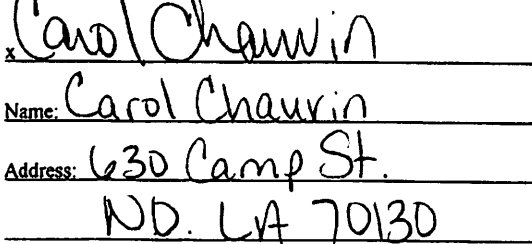 x Carol Chauvin
Name: Carol Chauvin
Address: 630 Camp St.
N.O. LA 70130